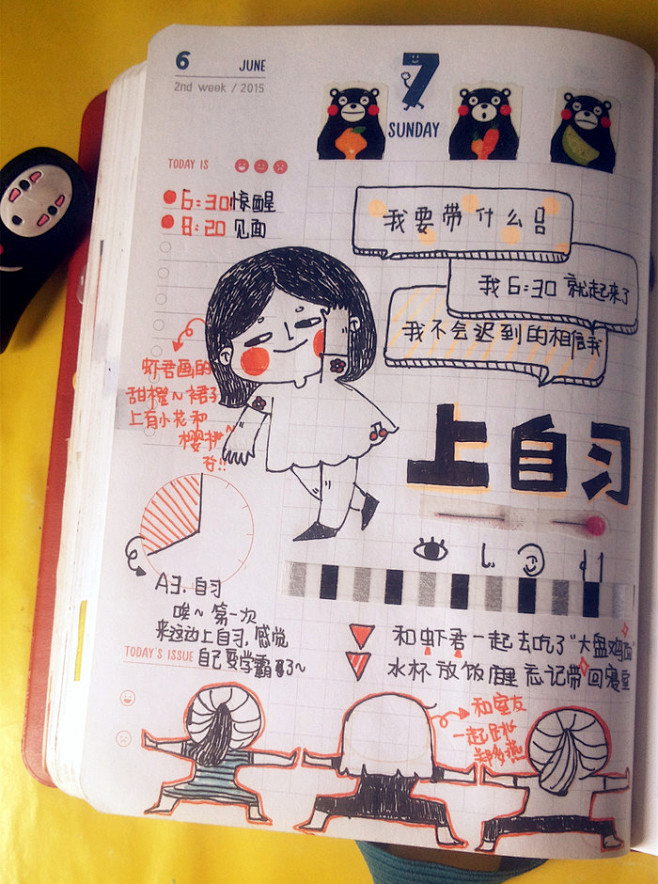 6 JUNE
2nd week / 2015
7
SUNDAY
TODAY IS
6:30惊醒
8:20 见面
我要带什么!
我6:30就起来了
我不会迟到的相信我
虾君画的
甜橙~裙子
上有小花和
上自习
A3.自习
唉~第一次
来这边上自习,感觉
TODAY'S ISSUE
自己要学霸了~
和虾君一起去吃了"大盘鸡面"
水杯放饭店里忘记带回寝室
和室友
一起跳
郑多燕